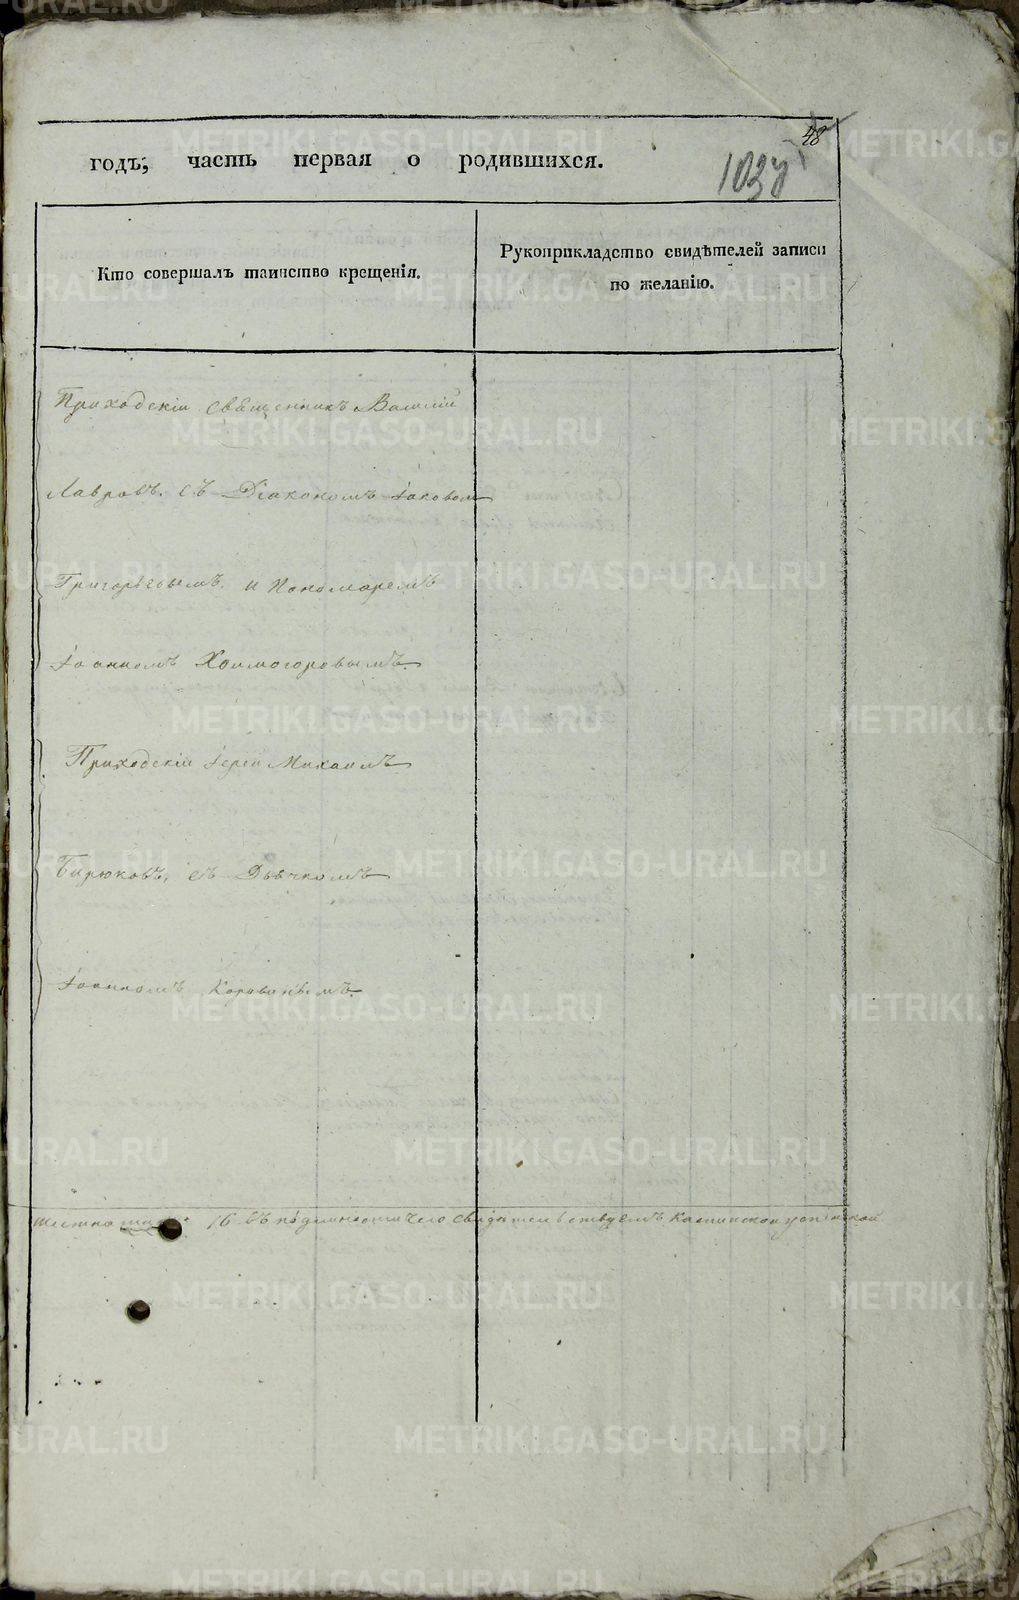 48
1037
годъ, часть первая о родившихся.
Кто совершалъ таинство крещенія.
Рукоприкладство свидѣтелей записи
по желанію.
Приходскій священникъ Василій
Лавровъ. съ Діакономъ Іаковом
Григорьевымъ. и Пономаремъ
Іоанномъ Холмогоровымъ.
Приходскій Іерей Михаилъ
Бирюковъ, съ Дьячкомъ
Іоанномъ Коровинымъ.
16. въ подлинности чего свидѣтельствуемъ Каслинской Успенской
METRIKI.GASO-URAL.RU